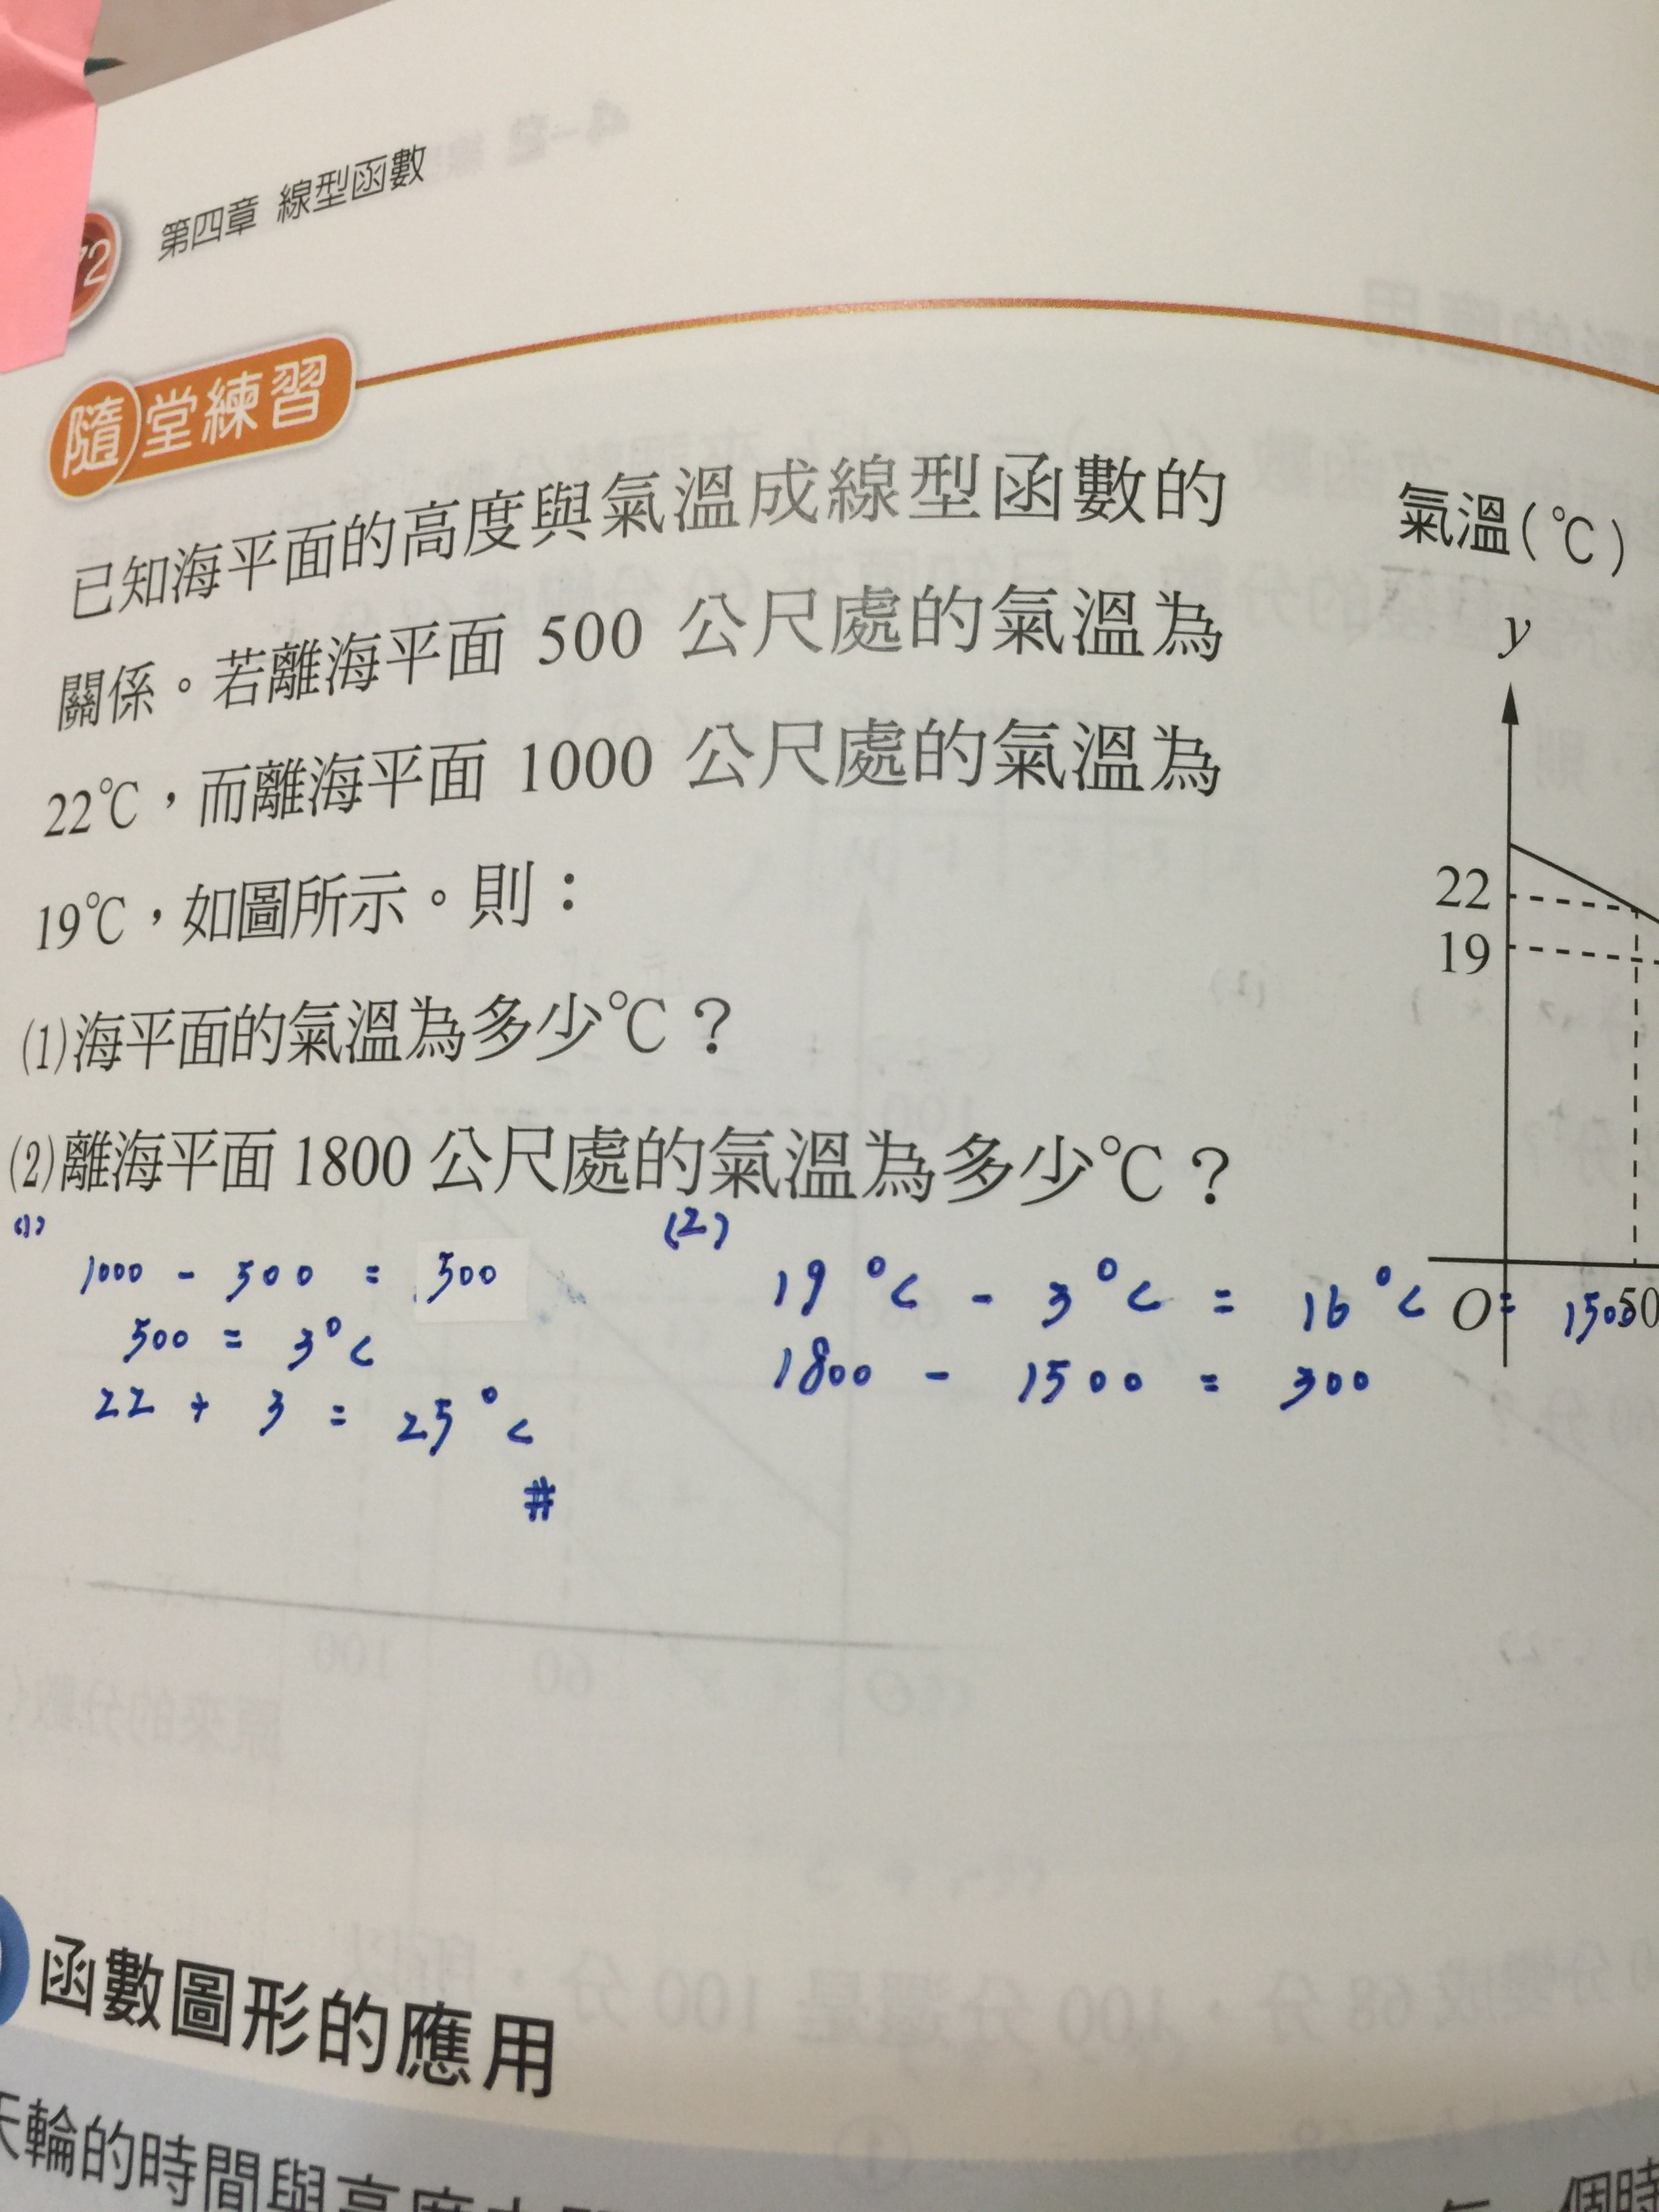 第四章 線型函數
隨堂練習
已知海平面的高度與氣溫成線型函數的
關係。若離海平面 500 公尺處的氣溫為
22℃,而離海平面 1000 公尺處的氣溫為
19℃,如圖所示。則:
(1)海平面的氣溫為多少℃?
(2)離海平面1800公尺處的氣溫為多少℃?
氣溫(℃)
y
22
19
O
(1)
1000 - 500 = 500
500 = 3°C
22 + 3 = 25°C
#
(2)
19°C - 3°C = 16°C = 1500
1800 - 1500 = 300
函數圖形的應用
天輪的時間與高度